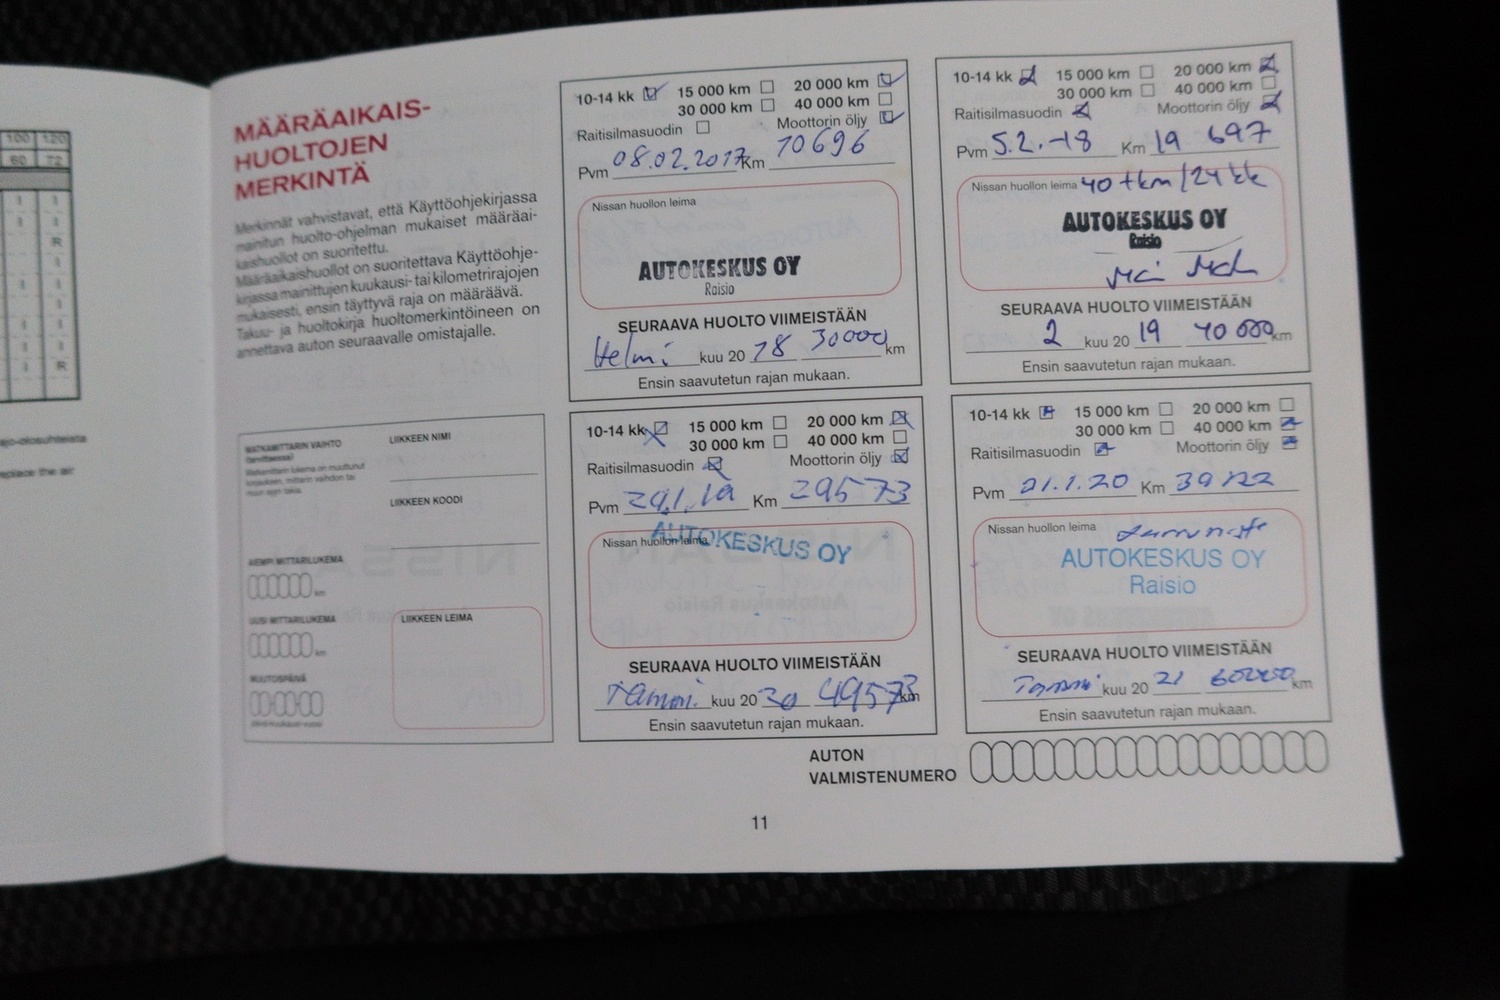 100 120
60 72
R
R
MÄÄRÄAIKAIS-
HUOLTOJEN
MERKINTÄ
Merkinnät vahvistavat, että Käyttöohjekirjassa
mainitun huolto-ohjelman mukaiset määräai-
kaishuollot on suoritettu.
Määräaikaishuollot on suoritettava Käyttöohje-
kirjassa mainittujen kuukausi- tai kilometrirajojen
mukaisesti, ensin täyttyvä raja on määräävä.
Takuu- ja huoltokirja huoltomerkintöineen on
annettava auton seuraavalle omistajalle.
MATKAMITTARIN VAIHTO
(tarvittaessa)
LIIKKEEN NIMI
LIIKKEEN KOODI
AIEMPI MITTARILUKEMA
km
UUSI MITTARILUKEMA
km
LIIKKEEN LEIMA
MUUTOSPÄIVÄ
10-14 kk 15 000 km 20 000 km
30 000 km 40 000 km
Raitisilmasuodin Moottorin öljy
Pvm 08.02.2017 Km 10696
Nissan huollon leima
AUTOKESKUS OY
Raisio
SEURAAVA HUOLTO VIIMEISTÄÄN
Helmi kuu 20 18 30000 km
Ensin saavutetun rajan mukaan.
10-14 kk 15 000 km 20 000 km
30 000 km 40 000 km
Raitisilmasuodin Moottorin öljy
Pvm 5.2.-18 Km 19 697
Nissan huollon leima 40 tkm/24 kk
AUTOKESKUS OY
Raisio
SEURAAVA HUOLTO VIIMEISTÄÄN
2 kuu 20 19 40 000 km
Ensin saavutetun rajan mukaan.
10-14 kk 15 000 km 20 000 km
30 000 km 40 000 km
Raitisilmasuodin Moottorin öljy
Pvm 29.1.19 Km 29573
Nissan huollon leima
AUTOKESKUS OY
SEURAAVA HUOLTO VIIMEISTÄÄN
Tammi kuu 20 20 49573 km
Ensin saavutetun rajan mukaan.
10-14 kk 15 000 km 20 000 km
30 000 km 40 000 km
Raitisilmasuodin Moottorin öljy
Pvm 21.1.20 Km
Nissan huollon leima
AUTOKESKUS OY
Raisio
SEURAAVA HUOLTO VIIMEISTÄÄN
Tammi kuu 20 21 60000 km
Ensin saavutetun rajan mukaan.
AUTON
VALMISTENUMERO
11